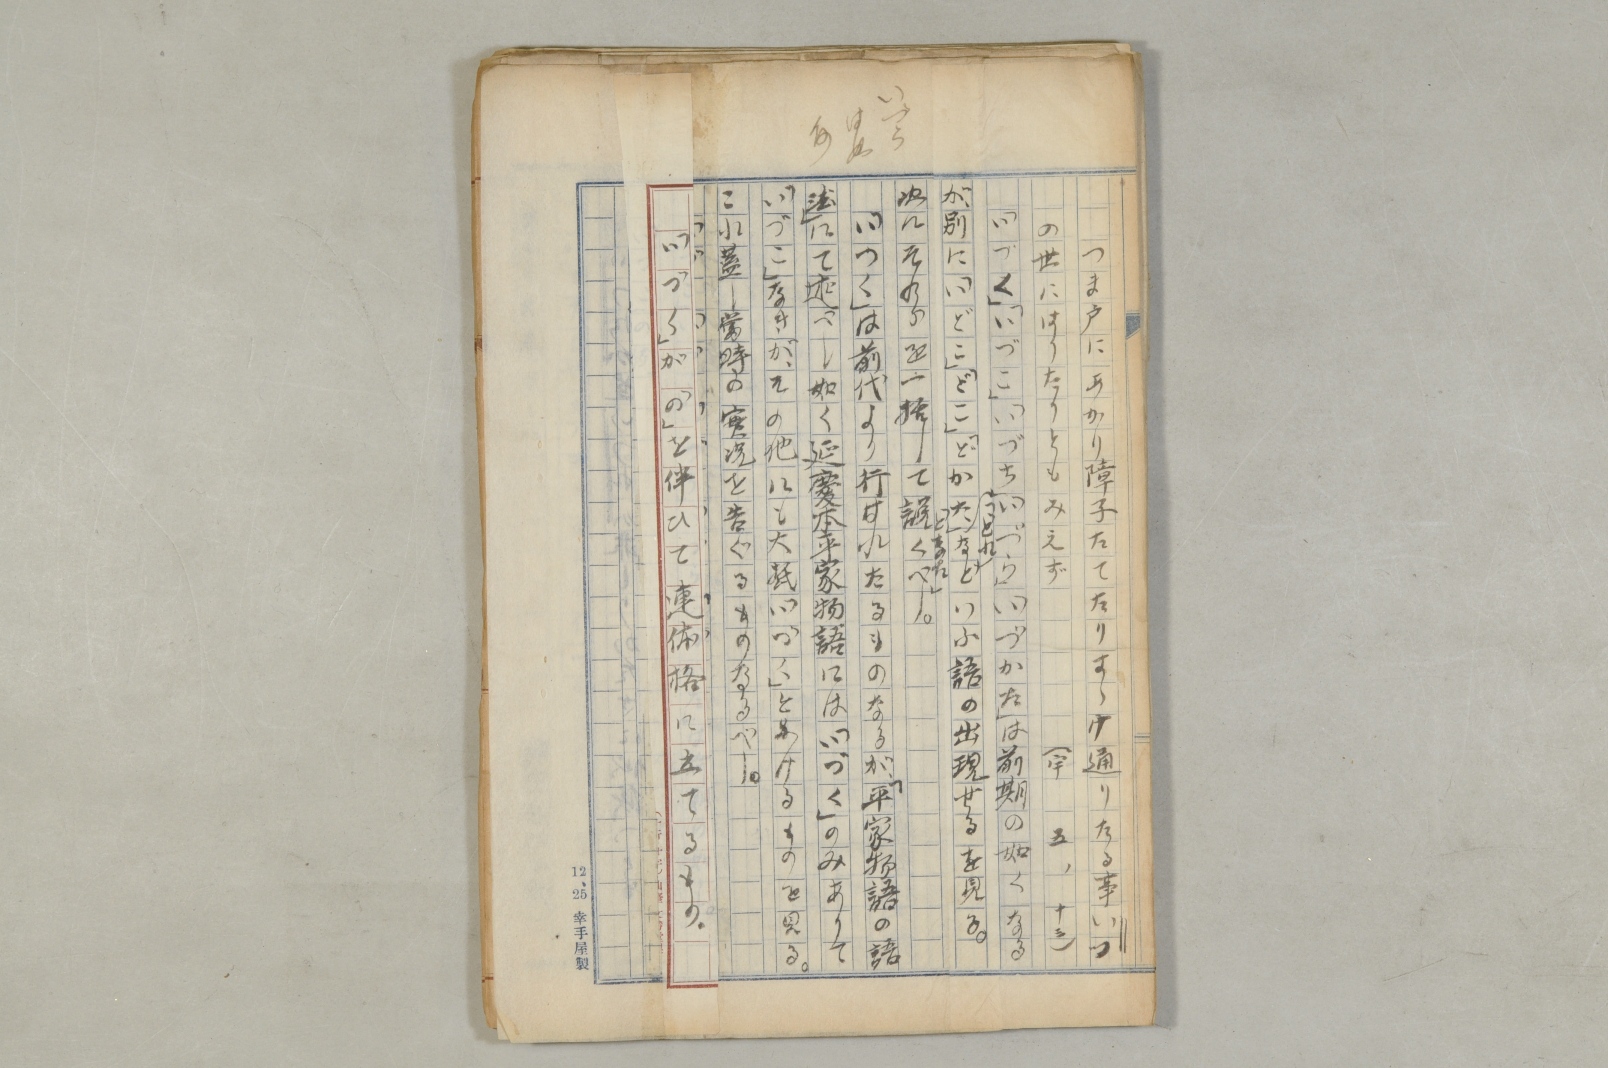 つま戸にあかり障子たてたりすらけ通りたる事いつ
の世にはうたりともみえず (宇 五、十三)
「いづく」「いづこ」「いづち」「いづら」「いづかた」は前期の如くなる
「いどれ」
が、別に「いどこ」「どこ」「どかた」などいふ語の出現せるを見る。
「どなた」
次にそれらを一括して説くべし。
「いづく」は前代より行はれたるものなるが、「平家物語の語
法」にて述べし如く延慶本平家物語には「いづく」のみありて
「いづこ」なきが、その他にも大抵「いづく」とあけるものを見る。
これ蓋し当時の実況を告ぐるものなるべし。
「いづく」が「の」を伴ひて連体格に立てるもの。
いづら
何
12、25 幸手屋製